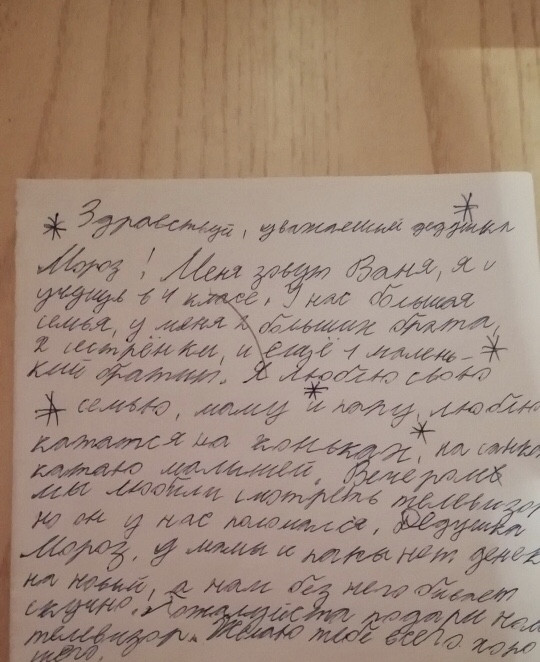 Здравствуй, уважаемый дедушка
Мороз! Меня зовут Ваня, я
учусь в 4 классе. У нас большая
семья, у меня 2 больших брата,
2 сестрёнки, и ещё 1 малень-
кий братиш. Я люблю свою
семью, маму и папу, люблю
кататся на коньках, на санка
катаю малышей. Вечером
мы любили смотреть телевизор
но он у нас поломался. Дедушка
Мороз, у мамы и папы нет денек
на новый, а нам без него бывает
скучно. Пожалуйста подари нам
телевизор. Желаю тебе всего хоро
шего.